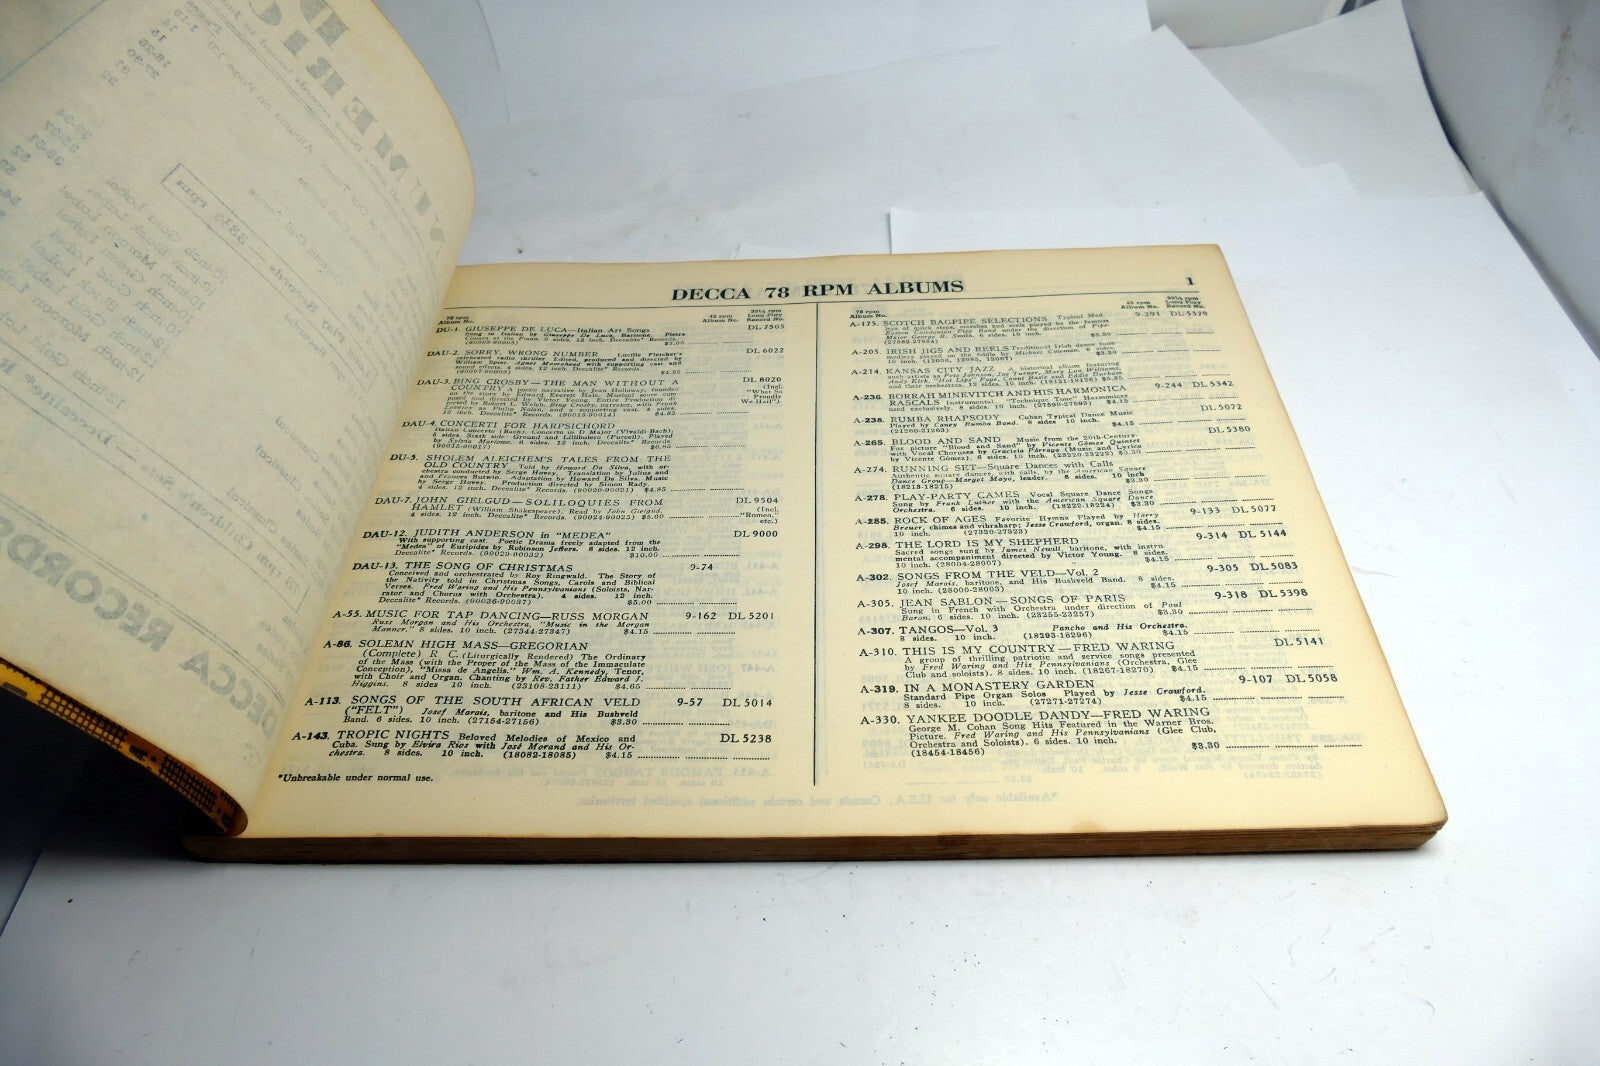 DECCA 78 RPM ALBUMS
1
78 rpm
Album No.
45 rpm
Album No.
33⅓ rpm
Long Play
Record No.
DU-1. GIUSEPPE DE LUCA—Italian Art Songs DL 7505
Sung in Italian by Giuseppe De Luca, Baritone. Pietro
Cimara at the Piano. 6 sides. 12 inch. Deccalite* Records.
$7.00
DAU-2. SORRY, WRONG NUMBER Lucille Fletcher's DL 6022
celebrated radio thriller Edited, produced and directed by
William Spier. Agnes Moorehead with supporting cast and
sound effects. 4 sides. 12 inch. Deccalite* Records.
(90007-90008) $4.85
DAU-3. BING CROSBY—THE MAN WITHOUT A DL 8020
COUNTRY A poetic narrative by Jean Holloway, founded (Incl.
on the story by Edward Everett Hale. Musical score com- "What So
posed and directed by Victor Young. Entire Production di- Proudly
rected by Robert L. Welch. Bing Crosby, narrator, with Frank We Hail")
Lovejoy as Philip Nolan, and a supporting cast. 4 sides.
12 inch. Deccalite* Records. (90013-90014) $4.85
DAU-4. CONCERTI FOR HARPSICHORD
Italian Concerto (Bach). Concerto in D Major (Vivaldi-Bach);
6 sides. Sixth side: Ground and Lillibulero (Purcell). Played
by Sylvia Marlowe. 6 sides. 12 inch. Deccalite* Records.
$6.85
DU-5. SHOLEM ALEICHEM'S TALES FROM THE
OLD COUNTRY Told by Howard Da Silva, with or-
chestra conducted by Serge Hovey. Translation by Julius and
and Frances Butwin. Adaptation by Howard Da Silva. Music
by Serge Hovey. Production directed by Simon Rady.
4 sides. 12 inch. Deccalite* Records. (90020-90021) $4.85
DAU-7. JOHN GIELGUD—SOLILOQUIES FROM DL 9504
HAMLET (William Shakespeare). Read by John Gielgud. (Incl.
4 sides. 12 inch. Deccalite* Records. (90024-90025) $5.00 "Romeo,"
etc.)
DAU-12. JUDITH ANDERSON in "MEDEA" DL 9000
With supporting cast. Poetic Drama freely adapted from the
"Medea" of Euripides by Robinson Jeffers. 8 sides. 12 inch.
Deccalite* Records. (90029-90032) $10.00
DAU-13. THE SONG OF CHRISTMAS 9-74
Conceived and orchestrated by Roy Ringwald. The Story of
the Nativity told in Christmas Songs, Carols and Biblical
Verses. Fred Waring and His Pennsylvanians (Soloists, Nar-
rator and Chorus with Orchestra). 4 sides. 12 inch.
Deccalite* Records. (90036-90037) $5.00
A-55. MUSIC FOR TAP DANCING—RUSS MORGAN 9-162 DL 5201
Russ Morgan and His Orchestra, "Music in the Morgan
Manner." 8 sides. 10 inch. (27344-27347) $4.15
A-86. SOLEMN HIGH MASS—GREGORIAN
(Complete) R. C. (Liturgically Rendered) The Ordinary
of the Mass (with the Proper of the Mass of the Immaculate
Conception), "Missa de Angelis." Wm. A. Kennedy, Tenor,
with Choir and Organ. Chanting by Rev. Father Edward J.
Higgins. 8 sides. 10 inch. (23108-23111) $4.65
A-113. SONGS OF THE SOUTH AFRICAN VELD 9-57 DL 5014
("FELT") Josef Marais, baritone and His Bushveld
Band. 6 sides. 10 inch. (27154-27156) $3.30
A-143. TROPIC NIGHTS Beloved Melodies of Mexico and DL 5238
Cuba. Sung by Elvira Rios with José Morand and His Or-
chestra. 8 sides. 10 inch. (18082-18085) $4.15
*Unbreakable under normal use.
78 rpm
Album No.
45 rpm
Album No.
33⅓ rpm
Long Play
Record No.
A-175. SCOTCH BAGPIPE SELECTIONS Typical Med- 9-291 DL 5376
leys of quick steps, marches and reels played by the famous
Boston Caledonian Pipe Band under the direction of Pipe-
Major George B. Smith. 6 sides. 10 inch. $3.30
A-205. IRISH JIGS AND REELS Traditional Irish dance tune
medleys played on the fiddle by Michael Coleman. 6 sides.
10 inch. $3.30
A-214. KANSAS CITY JAZZ A historical album featuring
such artists as Pete Johnson, Joe Turner, Mary Lou Williams,
Andy Kirk, "Hot Lips" Page, Count Basie and Eddie Durham
and their orchestras. 12 sides. 10 inch. (18121-18126) $5.85
A-236. BORRAH MINEVITCH AND HIS HARMONICA 9-244 DL 5342
RASCALS Instrumental "Technique Tone" Harmonicas
used exclusively. 8 sides. 10 inch. (27590-27593) $4.15
A-238. RUMBA RHAPSODY Cuban Typical Dance Music DL 5072
Played by Caney Rumba Band. 8 sides. 10 inch.
(21260-21263) $4.15
A-265. BLOOD AND SAND Music from the 20th-Century- DL 5380
Fox picture "Blood and Sand" by Vicente Gómez Quintet
with Vocal Choruses by Graciela Párraga (Music and Lyrics
by Vicente Gómez). 6 sides. 10 inch. (23220-23222) $3.30
A-274. RUNNING SET—Square Dances with Calls
Authentic square dances, with calls, by the American Square
Dance Group—Margot Mayo, leader. 6 sides. 10 inch.
(18213-18215) $3.30
A-278. PLAY-PARTY GAMES Vocal Square Dance Songs
Sung by Frank Luther with the American Square Dance
Group. 6 sides. 10 inch. (18222-18224) $3.30
A-285. ROCK OF AGES Favorite Hymns Played by Harry 9-133 DL 5077
Breuer, chimes and vibraharp; Jesse Crawford, organ. 8 sides.
10 inch. (27320-27323) $4.15
A-298. THE LORD IS MY SHEPHERD 9-314 DL 5144
Sacred songs sung by James Newill, baritone, with instru-
mental accompaniment directed by Victor Young. 8 sides.
10 inch. (28004-28007) $4.15
A-302. SONGS FROM THE VELD—Vol. 2 9-305 DL 5083
Josef Marais, baritone, and His Bushveld Band. 8 sides.
10 inch. (28000-28003) $4.15
A-305. JEAN SABLON—SONGS OF PARIS 9-318 DL 5398
Sung in French with Orchestra under direction of Paul
Baron. 6 sides. 10 inch. (23255-23257) $3.30
A-307. TANGOS—Vol. 3 Pancho and His Orchestra.
8 sides. 10 inch. (18293-18296) $4.15
A-310. THIS IS MY COUNTRY—FRED WARING DL 5141
A group of thrilling patriotic and service songs presented
by Fred Waring and His Pennsylvanians (Orchestra, Glee
Club and soloists). 8 sides. 10 inch. (18267-18270) $4.15
A-319. IN A MONASTERY GARDEN 9-107 DL 5058
Standard Pipe Organ Solos Played by Jesse Crawford.
8 sides. 10 inch. (27271-27274) $4.15
A-330. YANKEE DOODLE DANDY—FRED WARING
George M. Cohan Song Hits Featured in the Warner Bros.
Picture. Fred Waring and His Pennsylvanians (Glee Club,
Orchestra and Soloists). 6 sides. 10 inch.
(18454-18456) $3.30